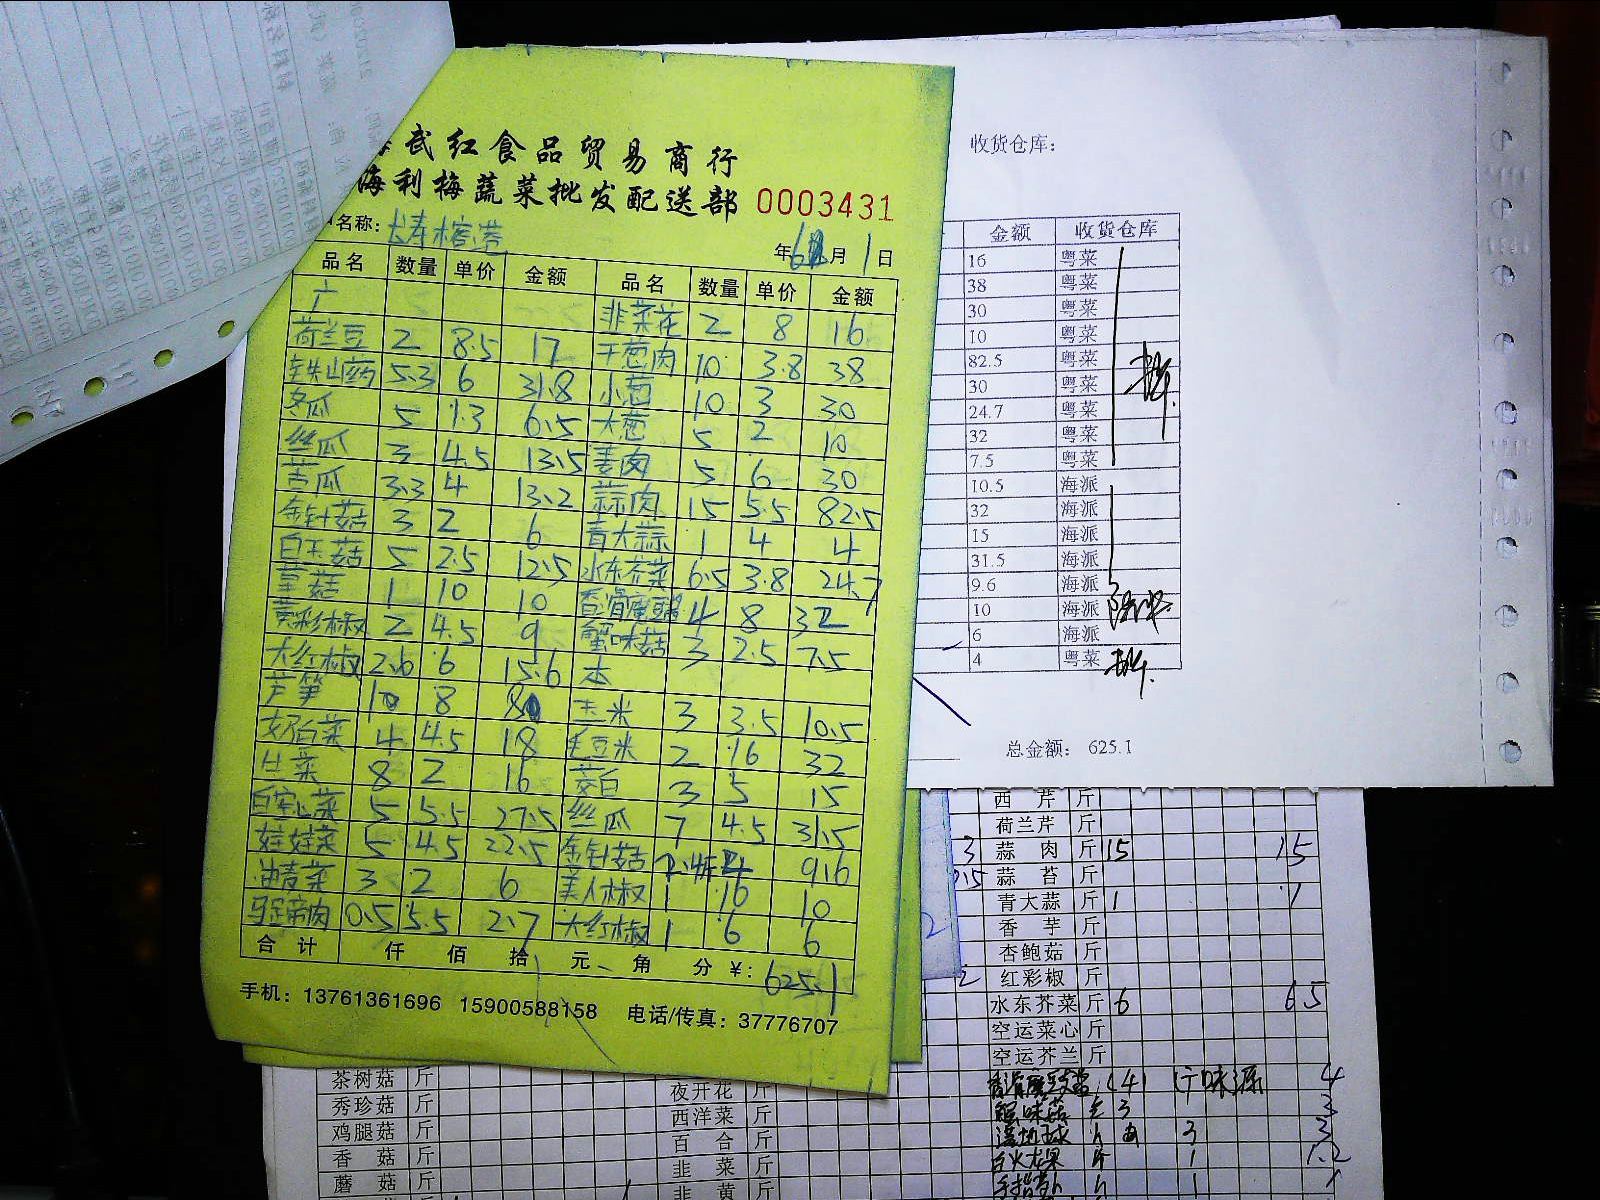 武红食品贸易商行
海利梅蔬菜批发配送部 0003431
名称：
年 6 月 1 日
品名 数量 单价 金额 品名 数量 单价 金额
广 韭菜花 2 8 16
荷兰豆 2 8.5 17 干葱肉 10 3.8 38
铁山药 5.3 6 31.8 小葱 10 3 30
冬瓜 5 1.3 6.5 大葱 5 2 10
丝瓜 3 4.5 13.5 姜肉 5 6 30
苦瓜 3.3 4 13.2 蒜肉 15 5.5 82.5
金针菇 3 2 6 青大蒜 1 4 4
白玉菇 5 2.5 12.5 水东芥菜 6.5 3.8 24.7
草菇 1 10 10 4 8 32
黄彩椒 2 4.5 9 蟹味菇 3 2.5 7.5
大红椒 2.6 6 15.6 本
芦笋 10 8 80 玉米 3 3.5 10.5
奶白菜 4 4.5 18 毛豆米 2 16 32
生菜 8 2 16 茭白 3 5 15
白空心菜 5 5.5 27.5 丝瓜 7 4.5 31.5
娃娃菜 5 4.5 22.5 金针菇 4 9.6
油麦菜 3 2 6 美人椒 1 10 10
马蹄肉 0.5 5.5 2.7 大红椒 1 6 6
合计 仟 佰 拾 元 角 分 ¥: 625.1
手机：13761361696 15900588158 电话/传真：37776707
收货仓库：
金额 收货仓库
16 粤菜
38 粤菜
30 粤菜
10 粤菜
82.5 粤菜
30 粤菜
24.7 粤菜
32 粤菜
7.5 粤菜
10.5 海派
32 海派
15 海派
31.5 海派
9.6 海派
10 海派
6 海派
4 粤菜
总金额： 625.1
西芹 斤
荷兰芹 斤
3 蒜肉 斤 15 15
蒜苔 斤
青大蒜 斤 1 1
香芋 斤
杏鲍菇 斤
2 红彩椒 斤
水东芥菜 斤 6 6.5
空运菜心 斤
空运芥兰 斤
茶树菇 斤 夜开花 斤
秀珍菇 斤 西洋菜 斤
鸡腿菇 斤 百合 斤
香菇 斤 韭菜 斤
蘑菇 斤 韭黄 斤